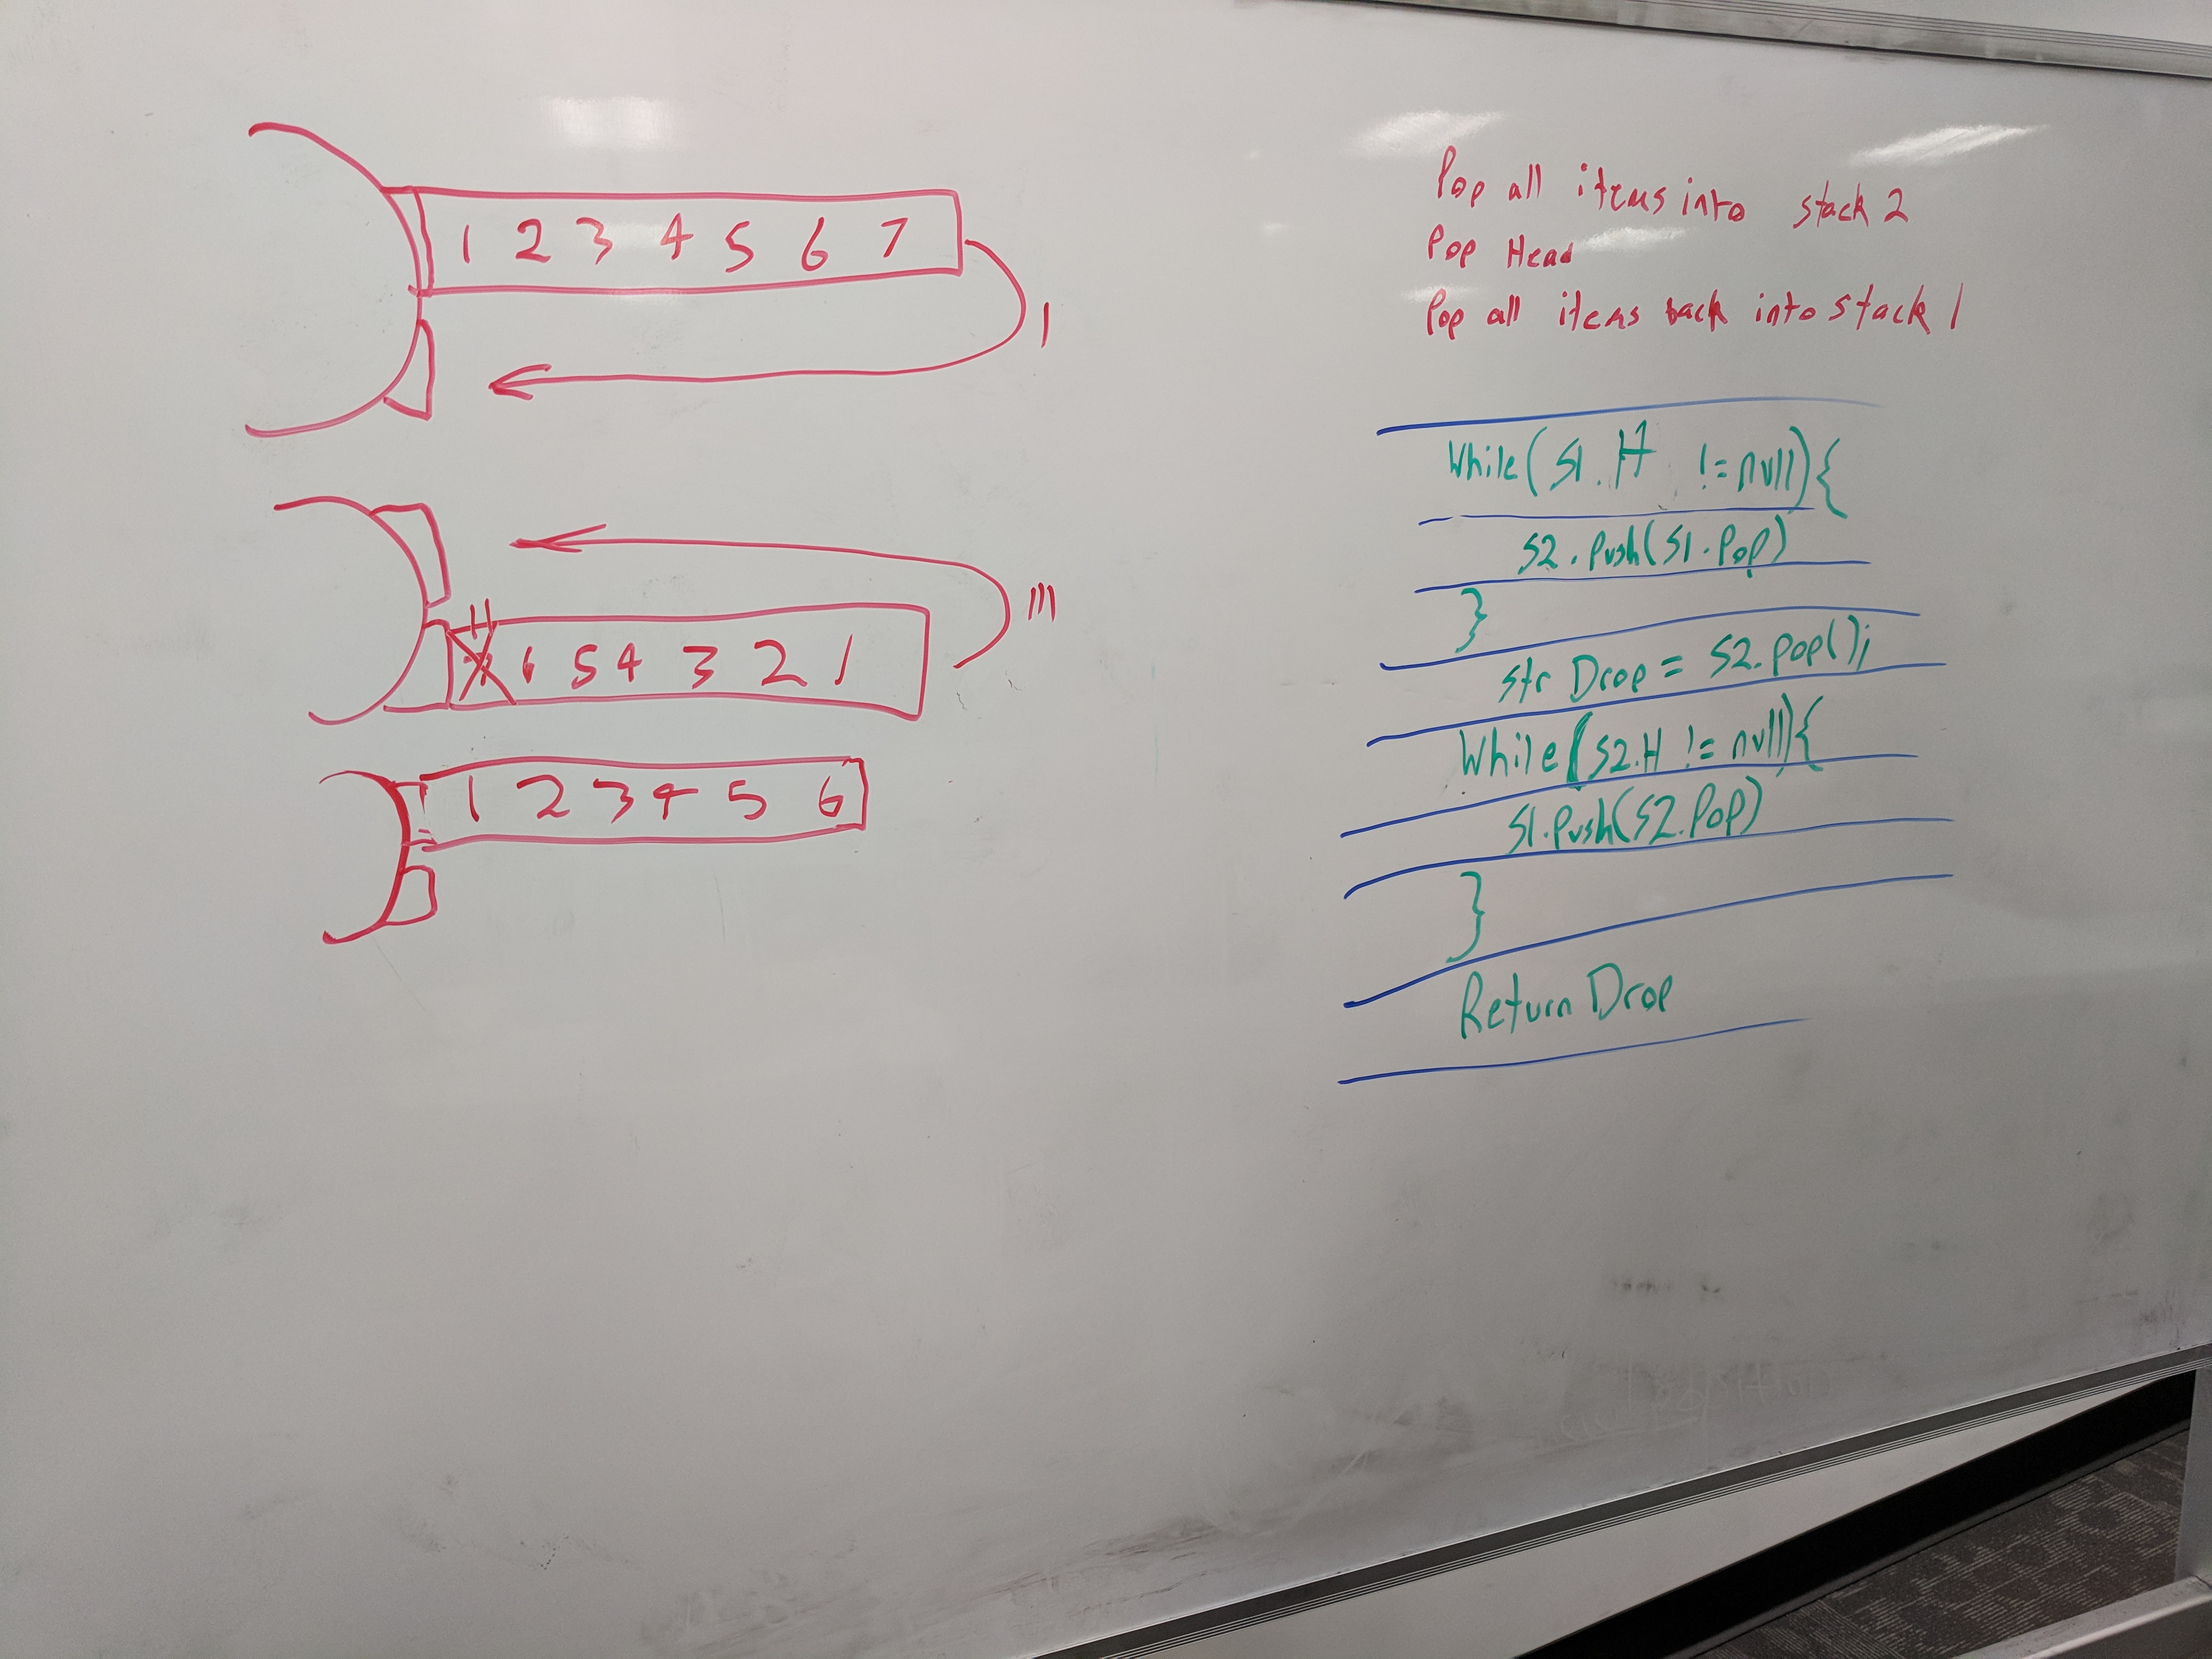 1 2 3 4 5 6 7
1
111
H
6 5 4 3 2 1
1 2 3 4 5 6
Pop all items into stack 2
Pop Head
Pop all items back into stack 1
While(S1.H != null){
S2.Push(S1.Pop)
}
str Drop = S2.pop();
While(S2.H != null){
S1.Push(S2.Pop)
}
Return Drop